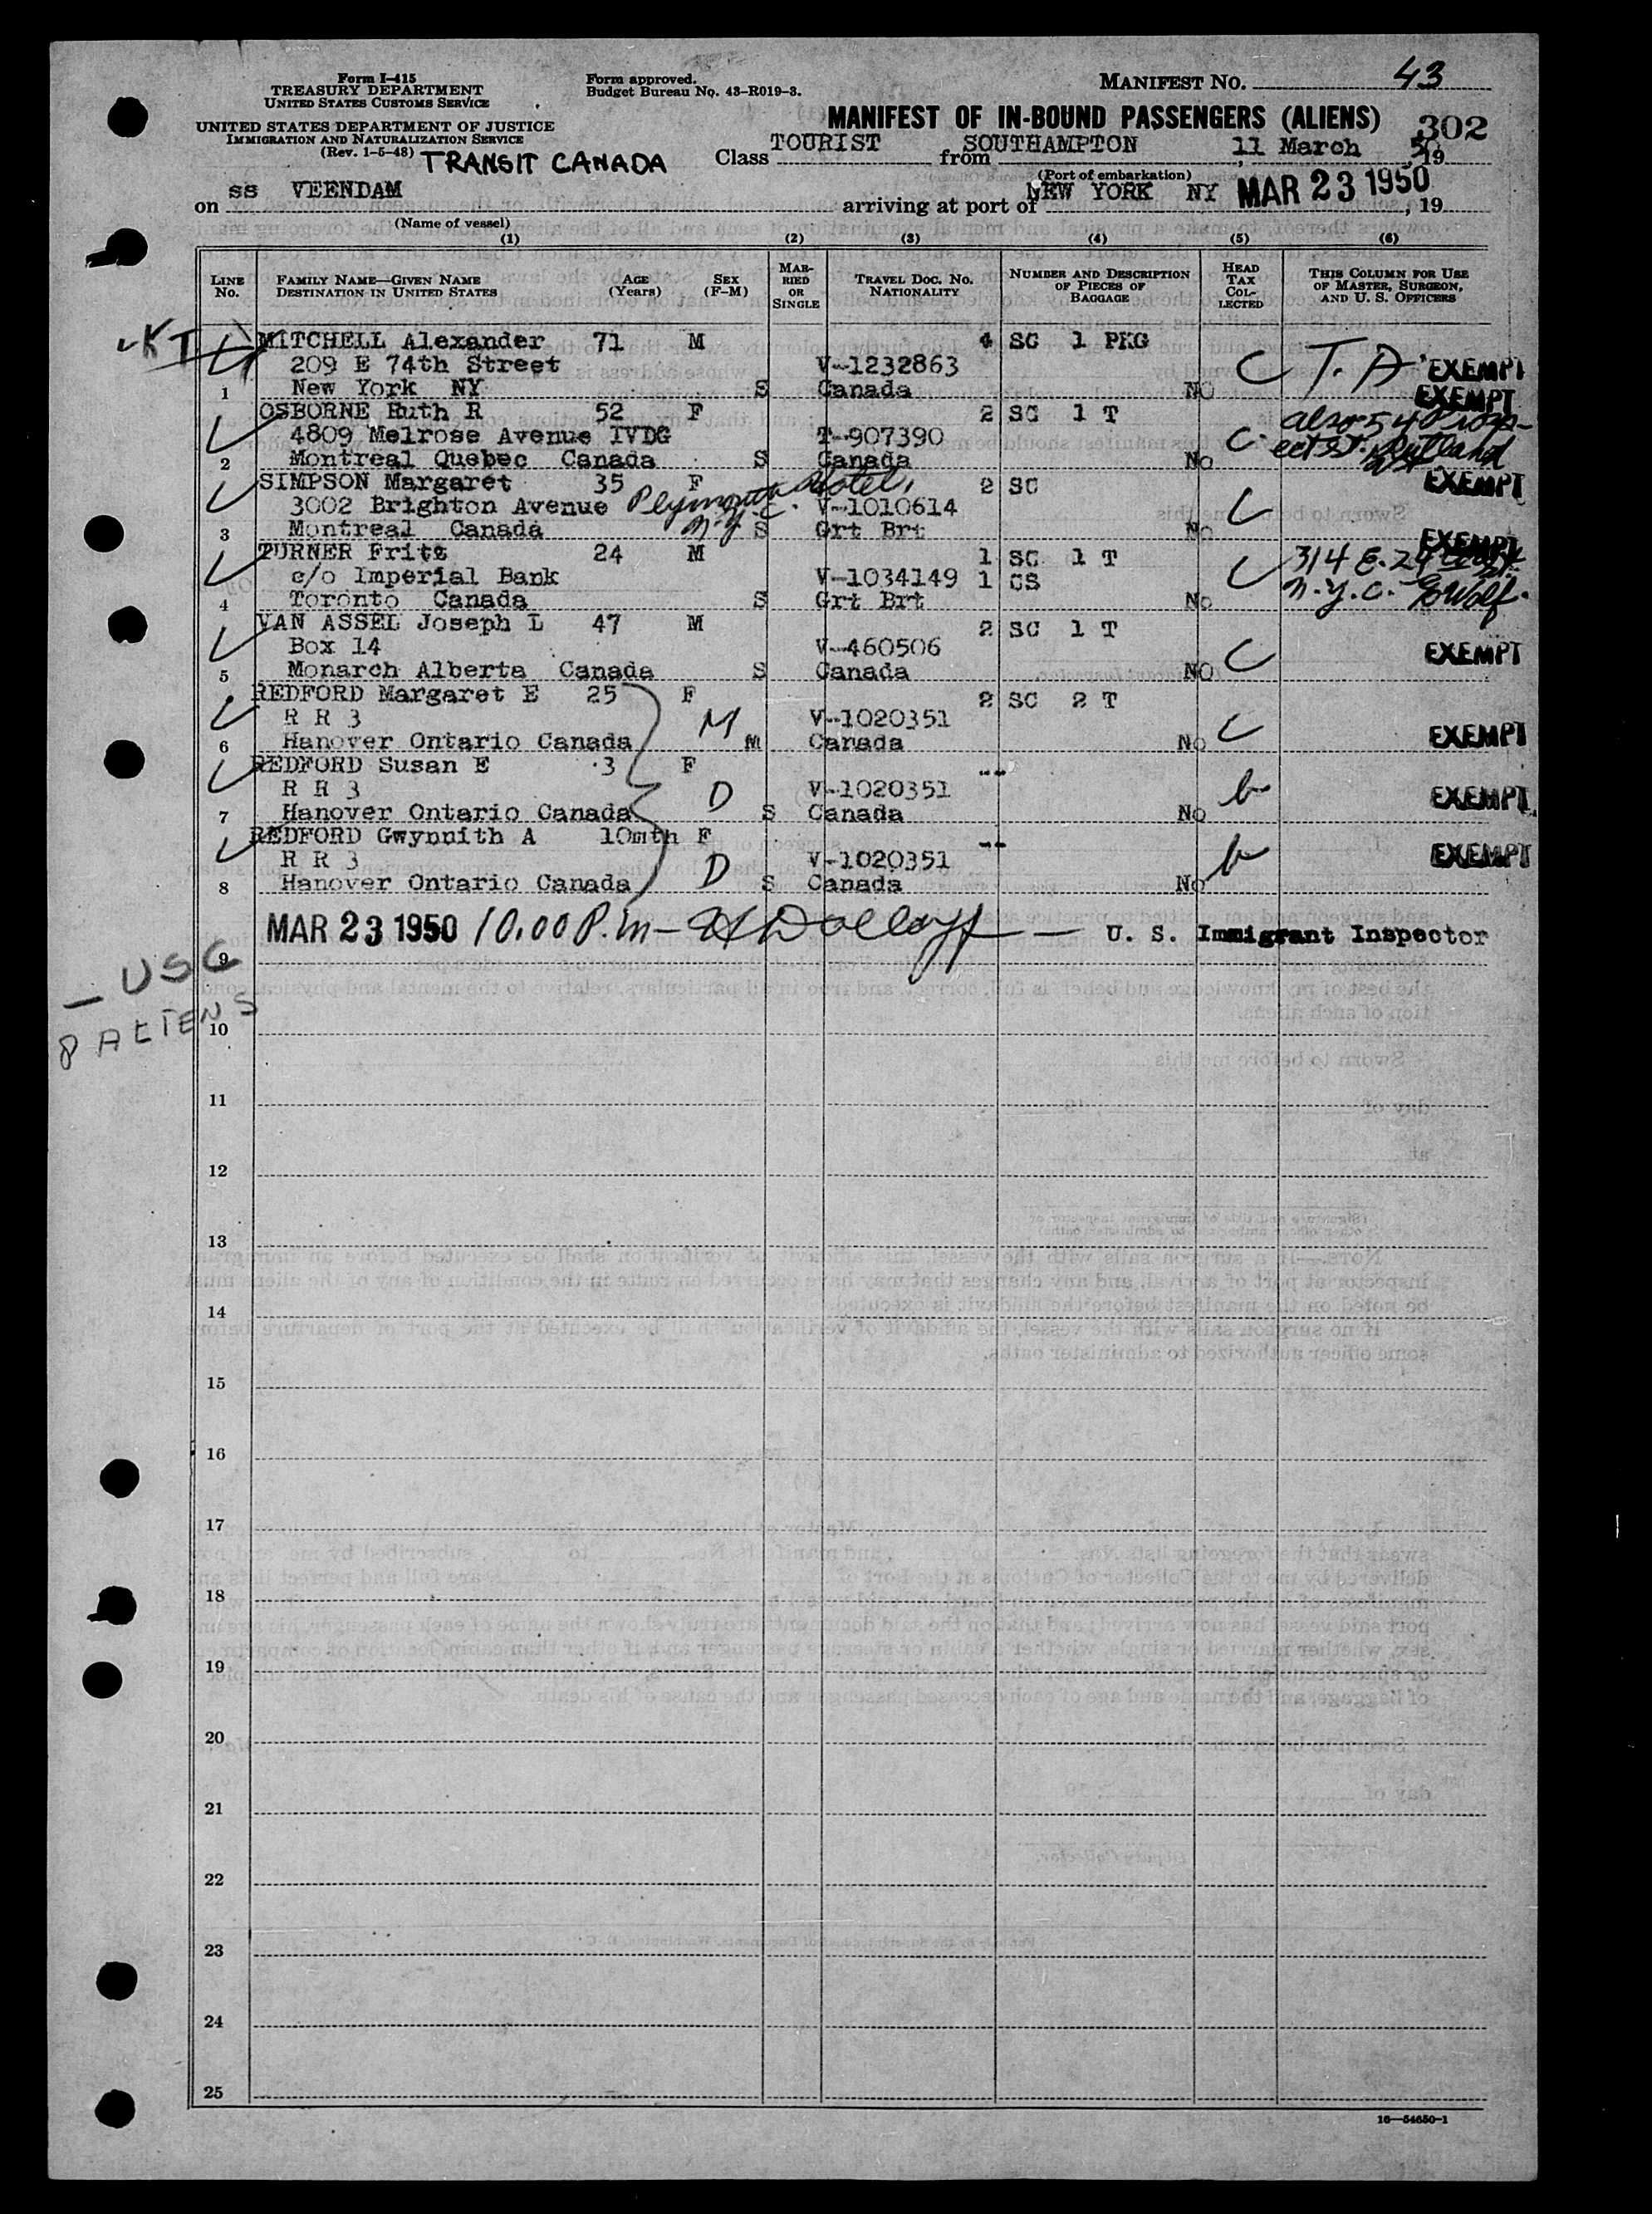 Form I-415
TREASURY DEPARTMENT
UNITED STATES CUSTOMS SERVICE
Form approved.
Budget Bureau No. 43-R019-3.
MANIFEST NO. 43
UNITED STATES DEPARTMENT OF JUSTICE
IMMIGRATION AND NATURALIZATION SERVICE
(Rev. 1-5-48) TRANSIT CANADA
MANIFEST OF IN-BOUND PASSENGERS (ALIENS) 302
Class TOURIST from SOUTHAMPTON, 11 March, 1950
(Port of embarkation)
on ss VEENDAM arriving at port of NEW YORK NY MAR 23 1950, 19
(Name of vessel)
(1) (2) (3) (4) (5) (6)
LINE No. FAMILY NAME—GIVEN NAME DESTINATION IN UNITED STATES AGE (Years) SEX (F-M) MARRIED OR SINGLE TRAVEL DOC. NO. NATIONALITY NUMBER AND DESCRIPTION OF PIECES OF BAGGAGE HEAD TAX COLLECTED THIS COLUMN FOR USE OF MASTER, SURGEON, AND U. S. OFFICERS
MITCHELL Alexander 71 M 4 SC 1 PKG
209 E 74th Street V-1232863 C T.A EXEMPT
1 New York NY S Canada NO
EXEMPT
OSBORNE Ruth R 52 F 2 SC 1 T also 54 Prosp-
4809 Melrose Avenue IVDG T-907390 C ect St. Rutland
2 Montreal Quebec Canada S Canada No
SIMPSON Margaret 35 F 2 SC EXEMPT
3002 Brighton Avenue Plymouth Hotel, V-1010614 C
3 Montreal Canada N.Y.C. S Grt Brt No
EXEMPT
TURNER Fritz 24 M 1 SC 1 T 314 E. 24
c/o Imperial Bank V-1034149 1 CS C N.Y.C. E Wolf.
4 Toronto Canada S Grt Brt No
VAN ASSEL Joseph L 47 M 2 SC 1 T
Box 14 V-460506 C EXEMPT
5 Monarch Alberta Canada S Canada NO
REDFORD Margaret E 25 F 2 SC 2 T
R R 3 M V-1020351 C
6 Hanover Ontario Canada M Canada No EXEMPT
REDFORD Susan E 3 F --
R R 3 D V-1020351 EXEMPT
7 Hanover Ontario Canada S Canada No
REDFORD Gwynnith A 10mth F --
R R 3 D V-1020351 EXEMPT
8 Hanover Ontario Canada S Canada No
MAR 23 1950 10.00 P.M — U. S. Immigrant Inspector
9
— USC
8 ALIENS
10
11
12
13
14
15
16
17
18
19
20
21
22
23
24
25
16—54650-1